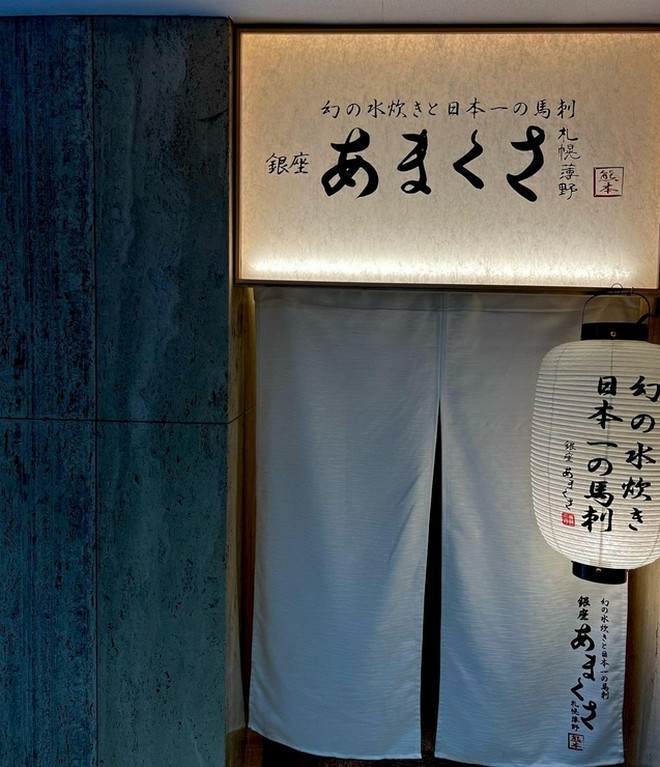 幻の水炊きと日本一の馬刺
銀座
あまくさ
札幌薄野
熊本
幻の水炊き
日本一の馬刺
銀座 あまくさ
幻の水炊きと日本一の馬刺
銀座
あまくさ
札幌薄野
熊本